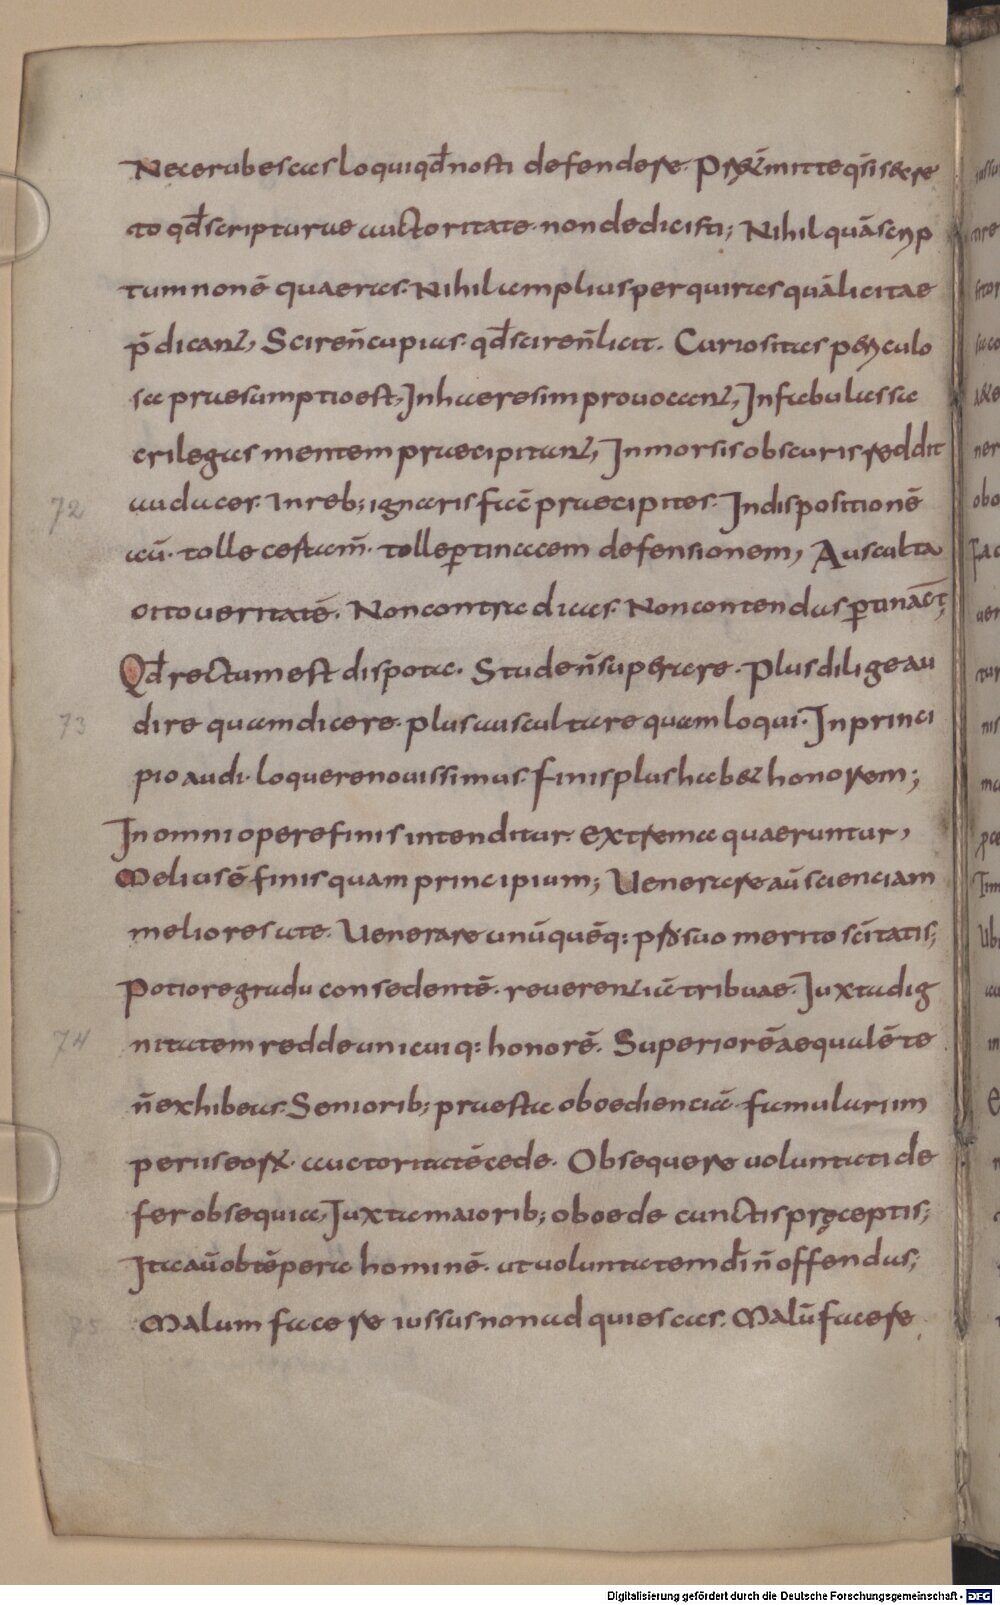 Nec erubescas loqui qđ nosti defendere. Pręt̃mitte q̄si secre
to qđ scripturae auctoritate non dedicisti; Nihil quā scrip
tum non ē quaeras. Nihil amplius perquiras quā licitae
p̄dicant̃, Scire n̄ cupias qđ scire n̄ licit. Curiositas periculo
sa praesumptio est, In haeresim provocant̃, In fabulas sa
crilegas mentem praecipitant̃, In morsis obscuris reddit
audaces. In reb; ignaris facē praecipites. In dispositionē
aū. tolle cestam̄. tolle ꝑtinacem defensionem, Ausculta
cito veritatē. Non contradicas. Non contendas ꝑtinac̄t,
Qđ rectum est dispota. Stude n̄ superare. Plus dilige au
dire quam dicere. plus auscultare quam loqui. In princi
pio audi. loquere novissimus. finis plus habet honorem;
In omni opere finis intenditur. extrema quaeruntur,
Melius ē finis quam principium; Venerare aū scienciam
meliores a te. Venerare unū quēq: pro suo merito sc̄itatis;
Potiore gradu consedentē. reverentiā tribuae. Juxta dig
nitatem redde unicuiq: honorē. Superiorē aequalē te
n̄ exhibeas. Seniorib; praesta oboedienciā famulari im
periis eoꝝ. auctoritatē cede. Obsequere voluntati de
fer obsequia, Juxta maiorib; oboede cunctis pręceptis;
Ita aū obtēpera hominē. ut voluntatem dī n̄ offendas;
Malum facere iussus non adquiescas. Malū facere
72
73
74
75
Digitalisierung gefördert durch die Deutsche Forschungsgemeinschaft - DFG